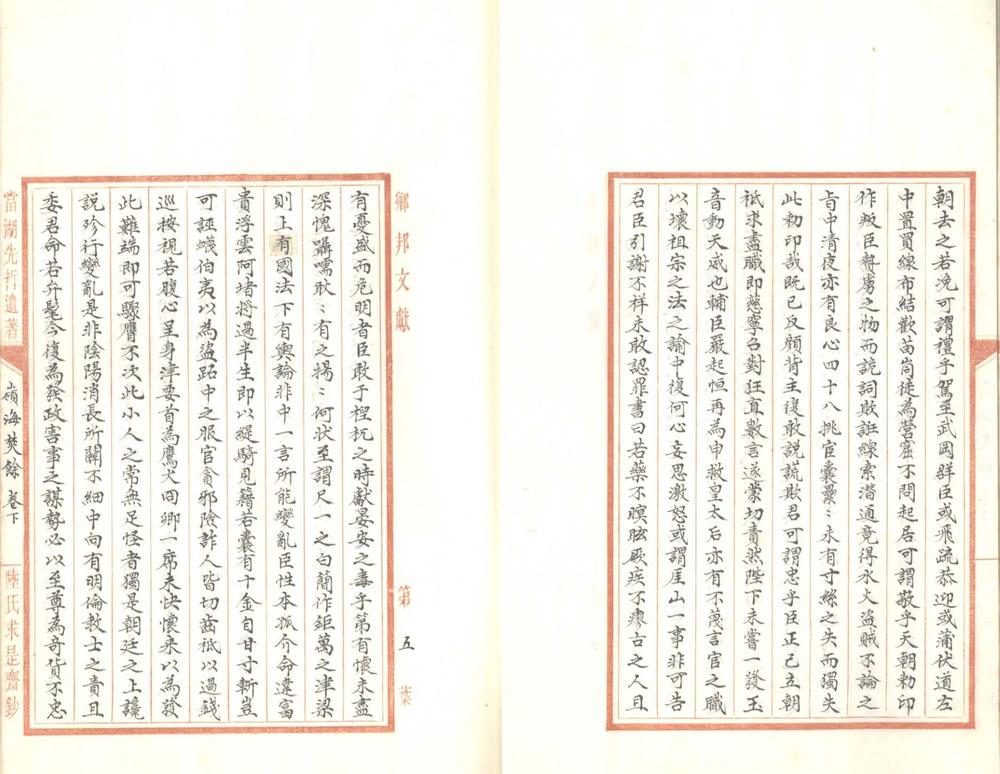 朝去之若浼可謂禮乎駕至武岡群臣或飛疏恭迎或蒲伏道左
中置買線布結歡苗峝徒為營窟不問起居可謂敬乎天朝勅印
作叛臣贅虜之物而詭詞欺誑線索潛通竟得水火盜賊不論之
旨中清夜亦有良心四十八挑官囊纍〻未有寸絲之失而獨失
此勅印哉既已反顏背主復敢説謊欺君可謂忠乎臣正己立朝
祇求盡職即慈寧召對狂直數言遂蒙切責然陛下未嘗一發玉
音動天威也輔臣嚴起恒再為申救皇太后亦有不蔑言官之職
以壞祖宗之法之諭中復何心妄思激怒或謂厓山一事非可告
君臣引謝不祥未敢認罪書曰若藥不瞑眩厥疾不瘳古之人且
鄉邦文獻
第五葉
有憂盛而危明者臣敢于桯杌之時獻晏安之毒乎第有懷未盡
深愧躡嚅耿〻有之揚〻何状至謂尺一之白簡作鉅萬之津梁
則上有國法下有輿論非中一言所能變亂臣性本孤介命違富
貴浮雲阿堵将過半生即以緹騎見籍若囊有十金自甘寸斬豈
可誣蠛伯夷以為盜跖中之服官貪邪險詐人皆切齒祇以過錢
巡按視若腹心呈身津要首為鷹犬冏卿一席未快懷来以為發
此難端即可驟膺不次此小人之常無足怪者獨是朝廷之上讒
説殄行變亂是非陰陽消長所關不細中向有明倫教士之責且
委君命若弁髦今復為發政害事之謀勢必以至尊為奇貨不忠
當湖先哲遺著
嶺海焚餘 卷下
陸氏求是齋鈔